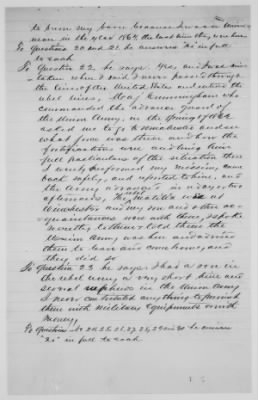 to prison my barn because I was a Union
man in the year 1864 the last time they was here
To Questions 20 and 21 he answers "No" in full
to each
To Question 22 he says. Yes, and I was mis-
taken when I said I never passed through
the lines of the United States and enter the
rebel lines, Maj Cunningham who
commanded the advance guard of
the Union Army, in the Spring of 1862
asked me to go to Winchester and see
what force was there, and how the
fortifications were and bring him
full particulars of the situation there
I safely performed my mission, came
back safely, and reported to him, and
the Army advanced in a day or two
afterwards, The went
Winchester and my son and other ac-
quaintances were with them, I spoke
to with them and told them the
Union Army was here and advise
them to leave and come home, and
they did so
To Question 23 he says: I had a son in
the rebel army a very short time and
several nephews in the Union Army
I never contributed anything to furnish
them with Military Equipments or with
money,
To Question Nr 24, 25, 26, 27, 28, 29 and 30 he answers
"No" in full to each